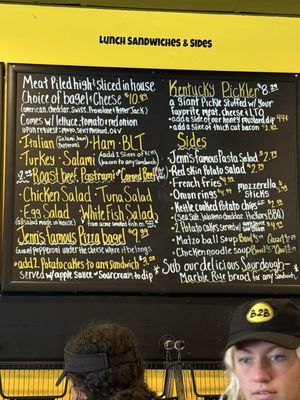 LUNCH SANDWICHES & SIDES
Meat Piled high & sliced in house
Choice of bagel & Cheese
(American, cheddar, Swiss, Provolone & Pepper Jack)
Comes w/ lettuce, tomato and onion
upon request: mayo,
• Italian (Salami, ham, Pepperoni) • Ham • BLT
Turkey • Salami (add 2 slices of
bacon to any sandwich)
Roast beef, Pastrami & Corned Beef
• Chicken Salad • Tuna Salad
Egg Salad White Fish Salad
(all salad made in house) from acme smoked fish co.
Jenn's famous Pizza bagel
Giant pepperoni under the cheese where it belongs
• add 2 Potato cakes to any sandwich
Served w/ apple sauce & sour cream to dip
Kentucky Pickler
a giant Pickle Stuffed w/ your
favorite meat, cheese & LTO
• add a side of our honey mustard dip 99¢
• add a slice of thick cut bacon
Sides
• Jenn's famous Pasta Salad
• Red skin Potato salad
• French fries
• Onion rings
mozzerella
sticks
• Kettle cooked Potato chips
(Sea Salt, Jalapeno cheddar, Hickory BBQ)
• 2 Potato cakes served w/
• Matzo ball soup Bowl Quart
• Chicken noodle soup Bowl Quart
• Sub our delicious Sourdough
Marble Rye bread for any Sandwich
B2B